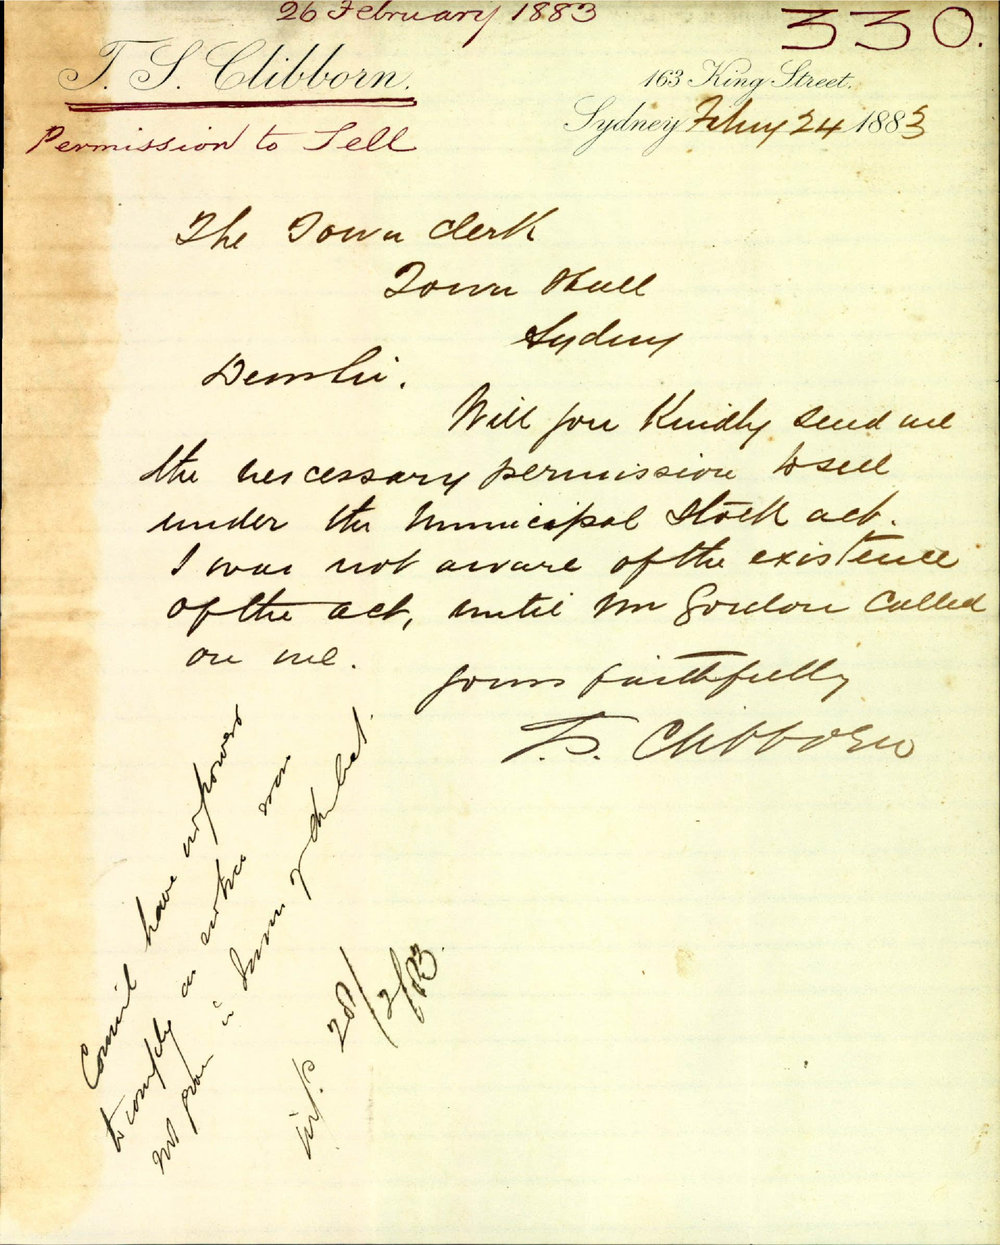 26 February 1883
330.
T. S. Clibborn.
163 King Street.
Permission to Sell
Sydney Feby 24 1883
The Town Clerk
Town Hall
Sydney
Dear Sir.
Will you Kindly send me
the necessary permission to sell
under the Municipal Stock act.
I was not aware of the existence
of the act, until Mr Gordon Called
on me.
Yours faithfully
T. S. Clibborn
Council have no power
to comply as notice was
not given in terms of the Act.
28/2/83